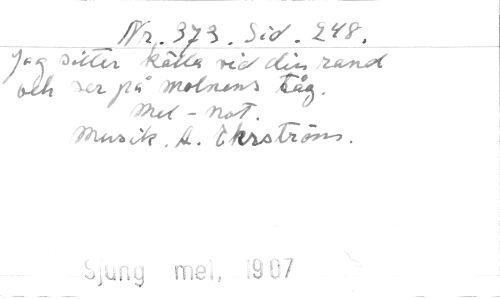 Nr. 373. Sid. 248.
Jag sitter källa vid din rand
och ser på molnens tåg.
Mel - not.
Musik. A. Ehrströms.
Sjung mel, 1907